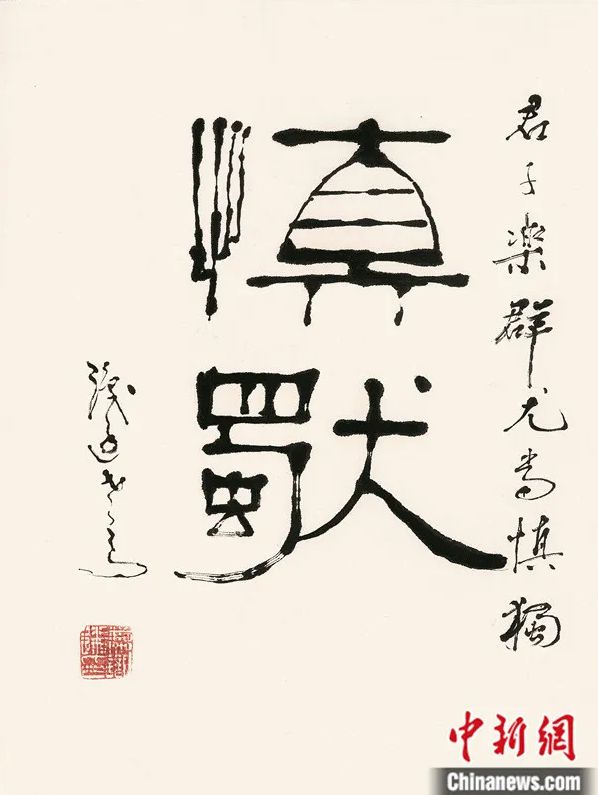 君子樂群尤尚慎獨
慎獨
中新網
Chinanews.com